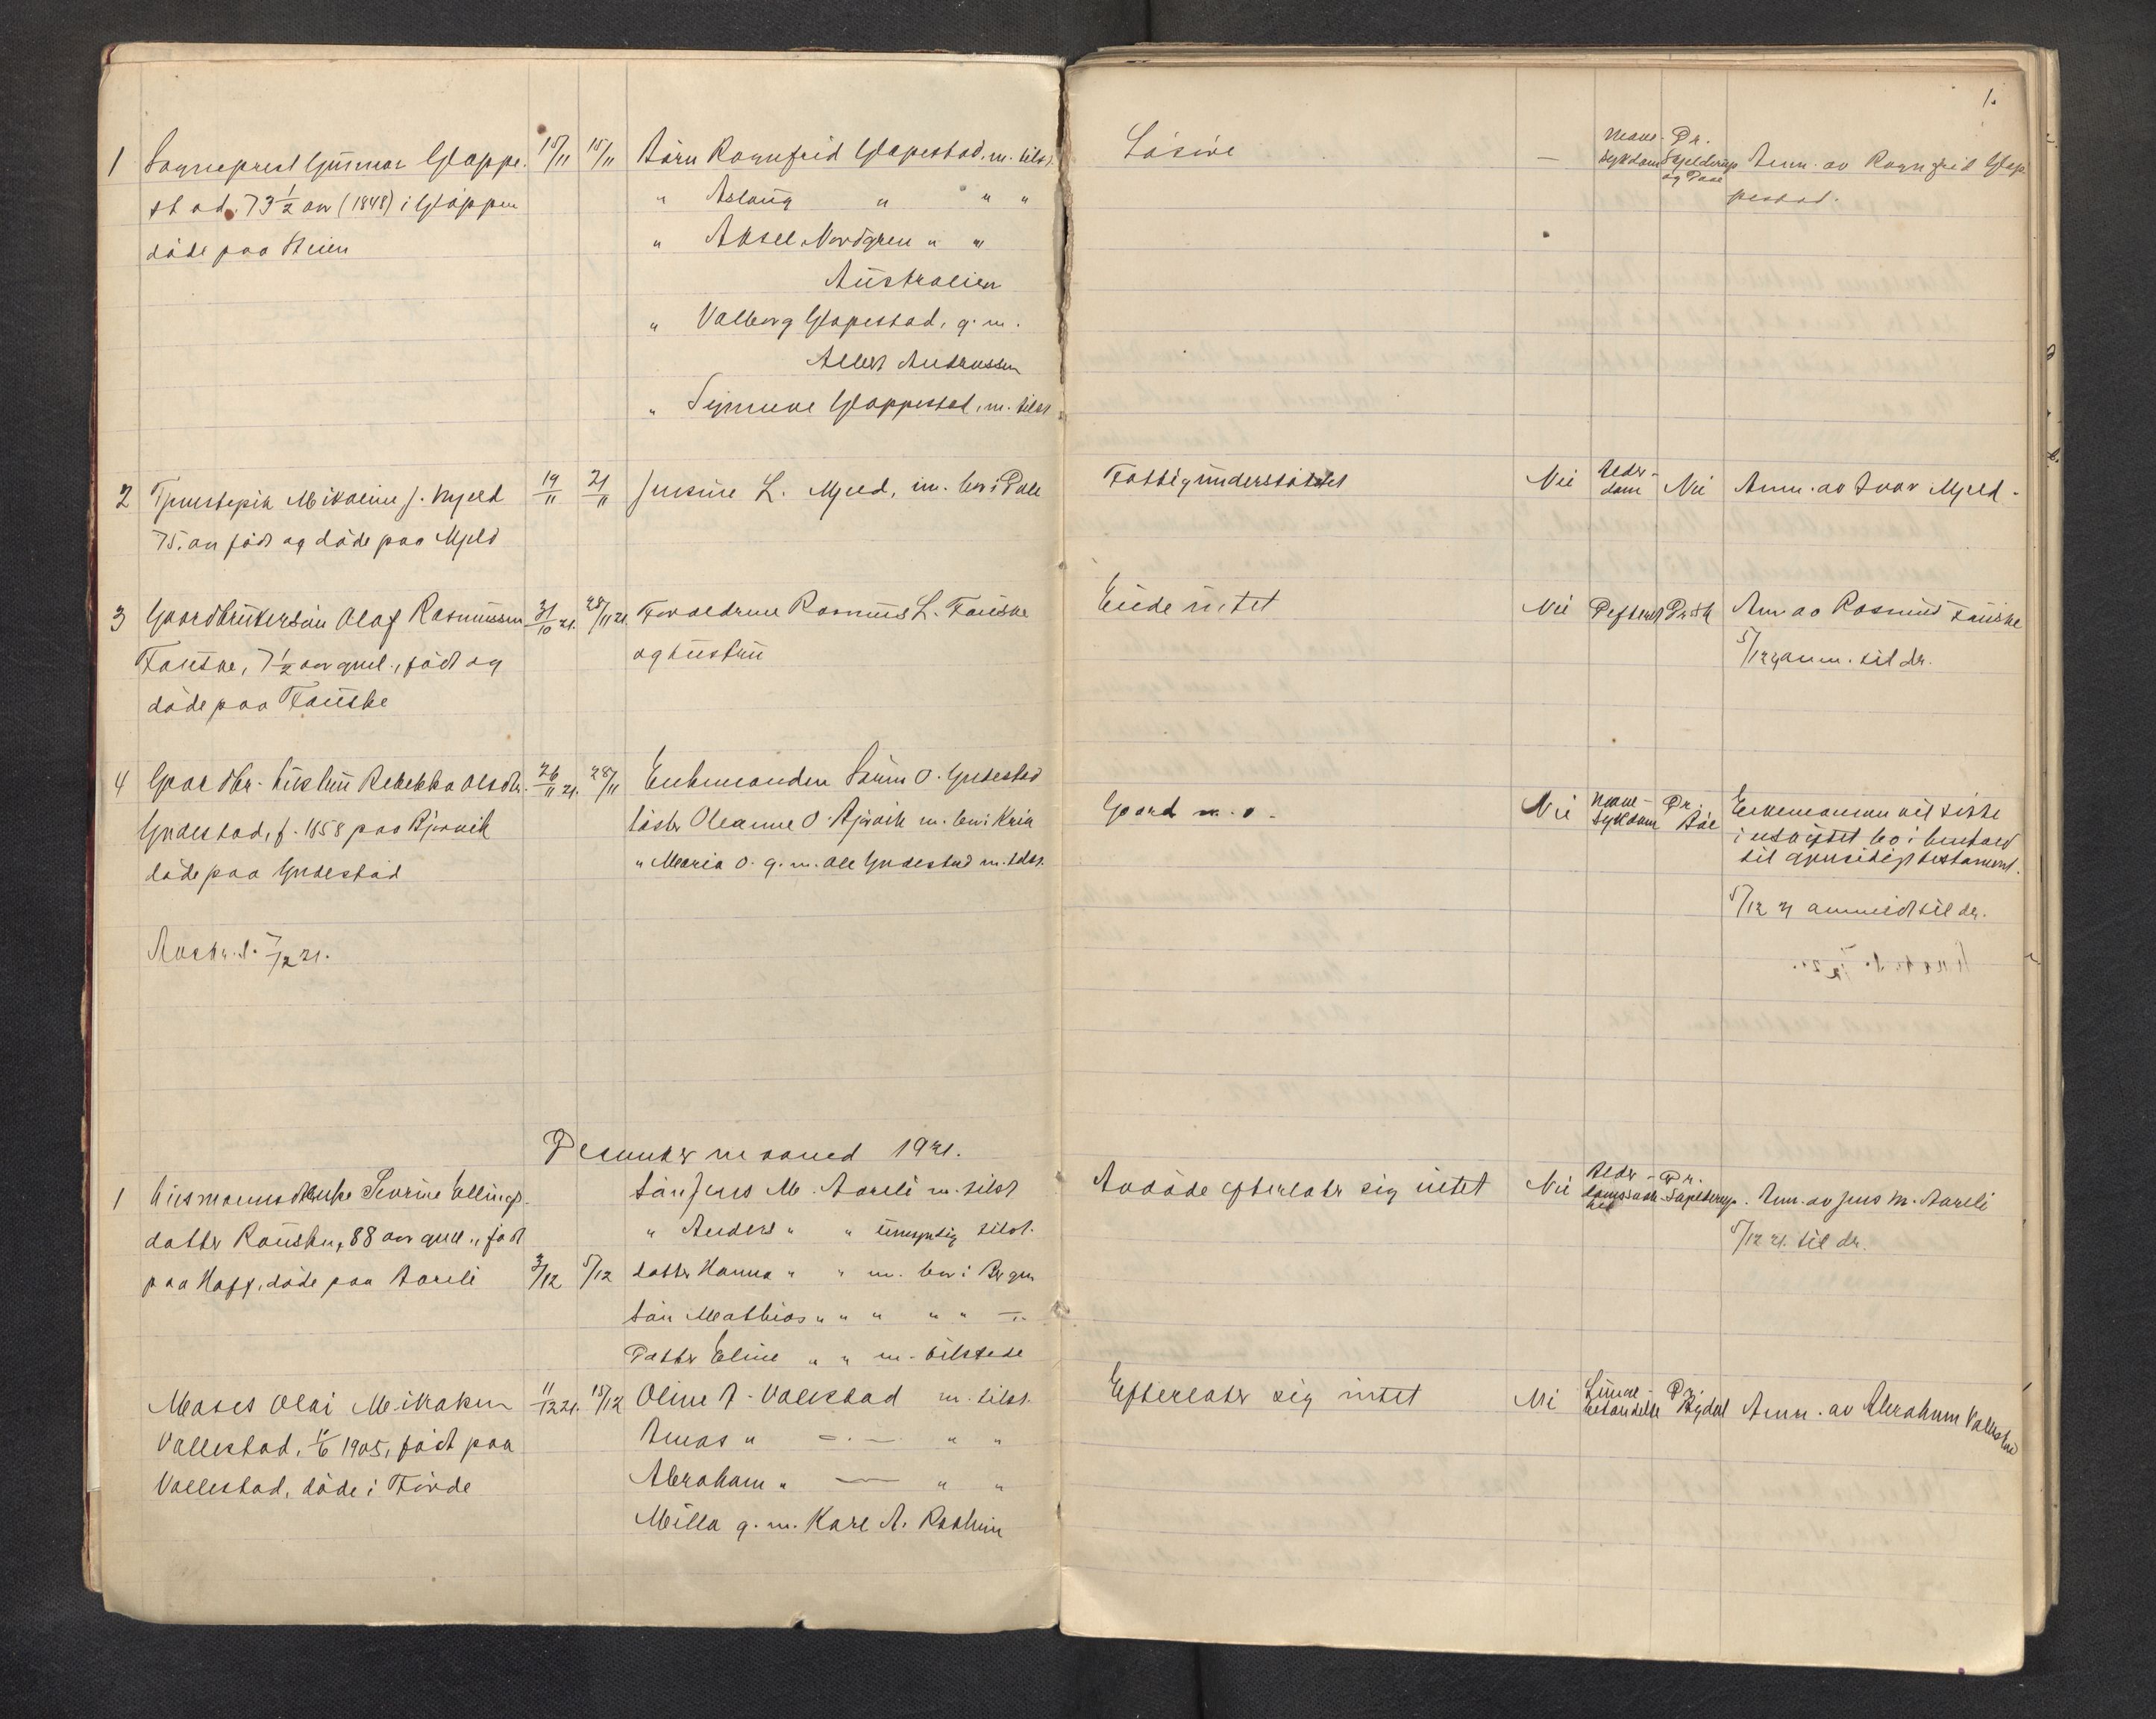 1.
1 Sogneprest Gunnar Glappe-
stad, 73 1/2 aar (1848) i Gloppen
døde paa Steien
15/11 15/11
Barn Ragnfrid Glapestad, m. tilst.
" Aslaug " " "
" Aksel Nordgren " "
Australien
" Valborg Glapestad, g. m.
Albert Andreassen
" Signeme Glappestad, m. tilst.
Løsøre
— Mave- Dr.
sykdom Sejelderup
og Daae
Anm. av Ragnfrid Glap-
pestad.
2 Tjenestepik Mikaline J. Mjeld
75. aar født og døde paa Mjeld
19/11 21/11
Jensine L. Mjeld, m. bor i Dale
Fattigunderstøttet
Nei Alder-
dom Nei Anm. av Ivar Mjeld.
3 Gaardbrukersøn Olaf Rasmussen
Fauske, 7 1/2 aar gml., født og
døde paa Fauske
31/10 21. 28/11 21.
Foraeldrene Rasmus L. Fauske
og hustru
Eiede intet
Nei Difteri Dr. Sk Anm av Rasmus Fauske
5/12 21 anm. til dr.
4 Gaardbr. hustru Rebekka Olsdtr.
Yndestad, f. 1858 paa Bjørvik
døde paa Yndestad
26/11 21. 28/11
Enkemanden Sørin O. Yndestad
søster Oleanne O. Bjørvik m. bor i Kria
" Maria O. g. m. Ole Yndestad m. tilst.
Gaard m. v.
Nei Mave-
sykdom Dr.
Aae
Enkemanden vil sitte
i uskiftet bo i henhold
til gjensidig testament.
5/12 21 anmeldt til dr.
Avskr. s. 7/12 21.
Desember maaned 1921.
1 Husmandsenke Severine Ellings-
datter Rauska, 88 aar gml., født
paa Haff, døde paa Aareli
3/12 5/12
Søn Jens M. Aareli m. tilst
" Anders " " umyndig tilst.
datter Hanna " " m. bor i Bergen
Søn Mathias " " " " —"—
Datter Eline " " m. tilstede
Avdøde efterlater sig intet
Nei Alder- Dr.
domssvak- Sejelderup.
het
Anm. av Jens M. Aareli
5/12 21. til dr.
Moses Olai Mikalsen
Vallestad, 11/6 1905, født paa
Vallestad, døde i Førde
11/12 21. 15/12
Oline A. Vallestad m. tilst.
Amas " —.— " "
Abraham " —— " "
Milla g. m. Karl A. Rashim
Efterlater sig intet
Nei Lunge-
betændelse Dr.
Bigdal Anm. av Abraham Vallestad